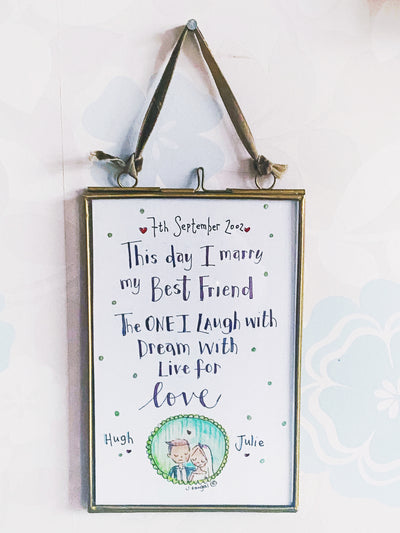 7th September 2002
This day I marry
my Best Friend
The ONE I Laugh with
Dream with
Live for
love
Hugh
Julie